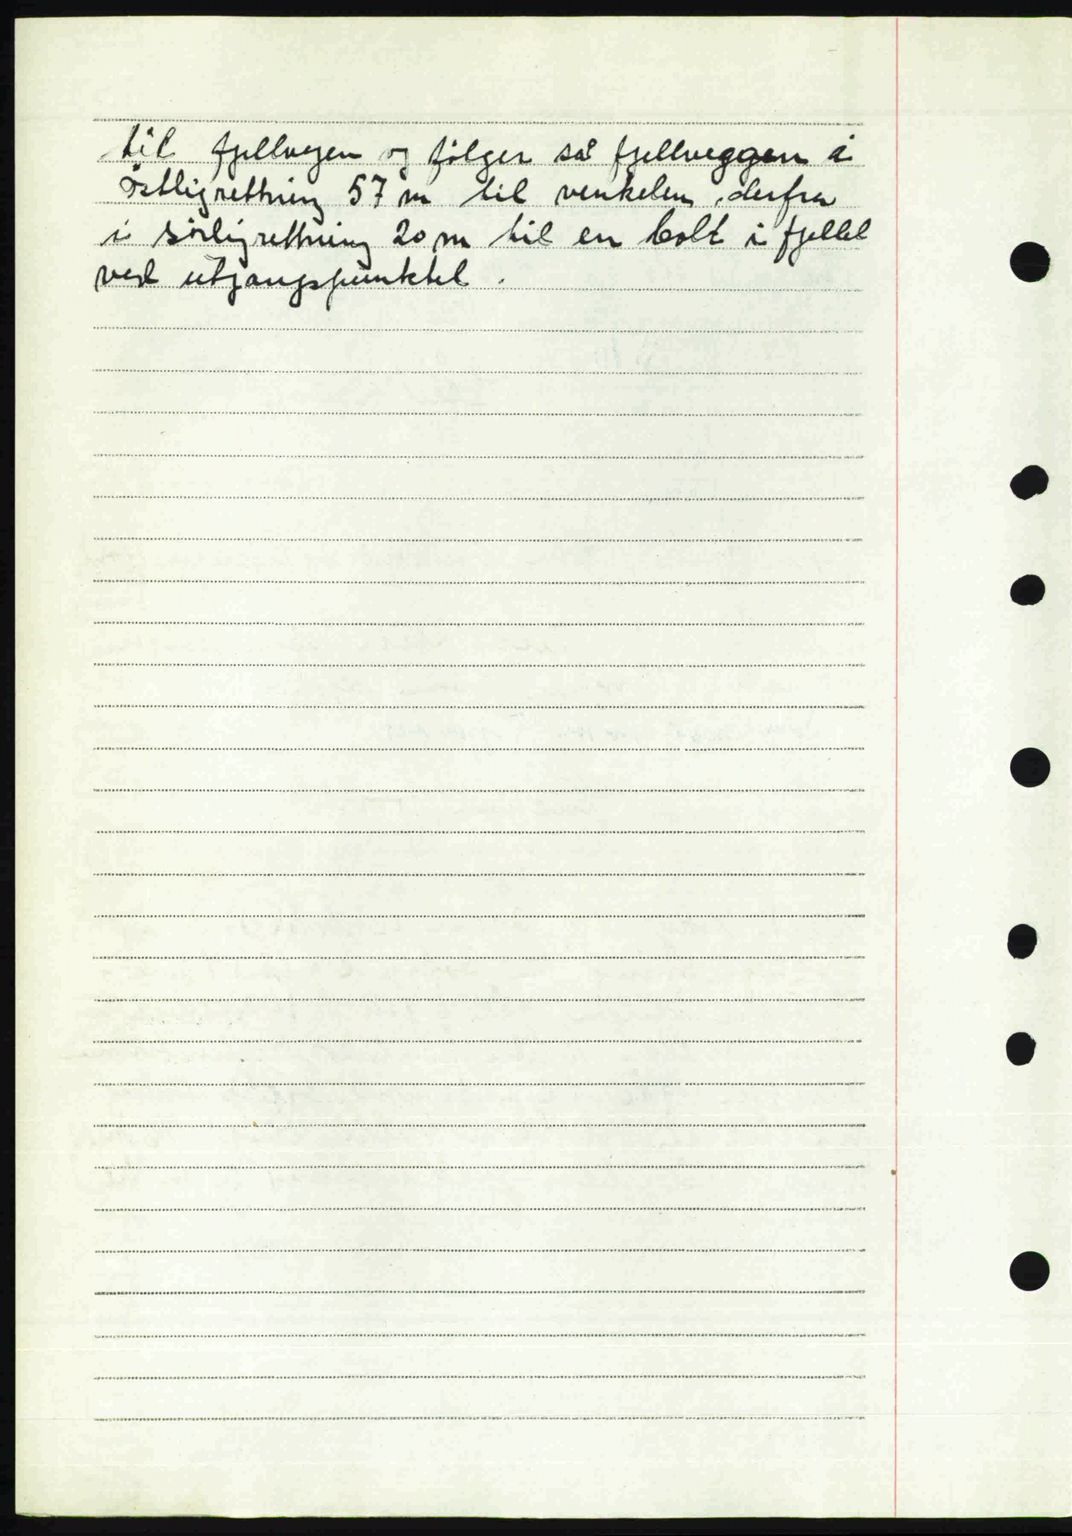 til fjellvegen og følger så fjellveggen i
östlig rettning 57 m til venkelen, derfra
i sörlig rettning 20 m til en bolt i fjellet
ved utgangspunktet.